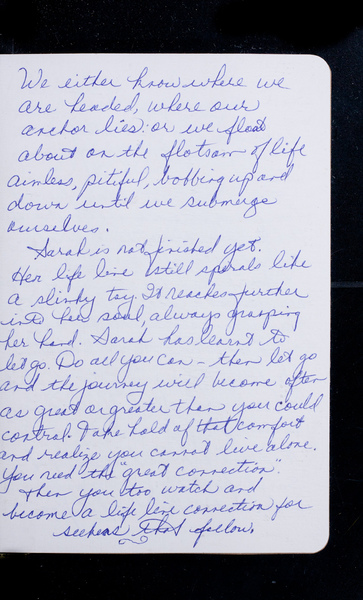 We either know where we
are headed, where our
anchor lies: or we float
about on the flotsam of life
aimless, pitiful, bobbing up and
down until we submerge
ourselves.
Sarah is not finished yet.
Her life line still spirals like
a slinky toy. It reaches further
into her soul, always grasping
her hand. Sarah has learnt to
let go. Do all you can - then let go
and the journey will become often
as great or greater than you could
control. Take hold of that comfort
and realize you cannot live alone.
You need the "great connection".
Then you too watch and
become a life line connection for
seekers that follow.